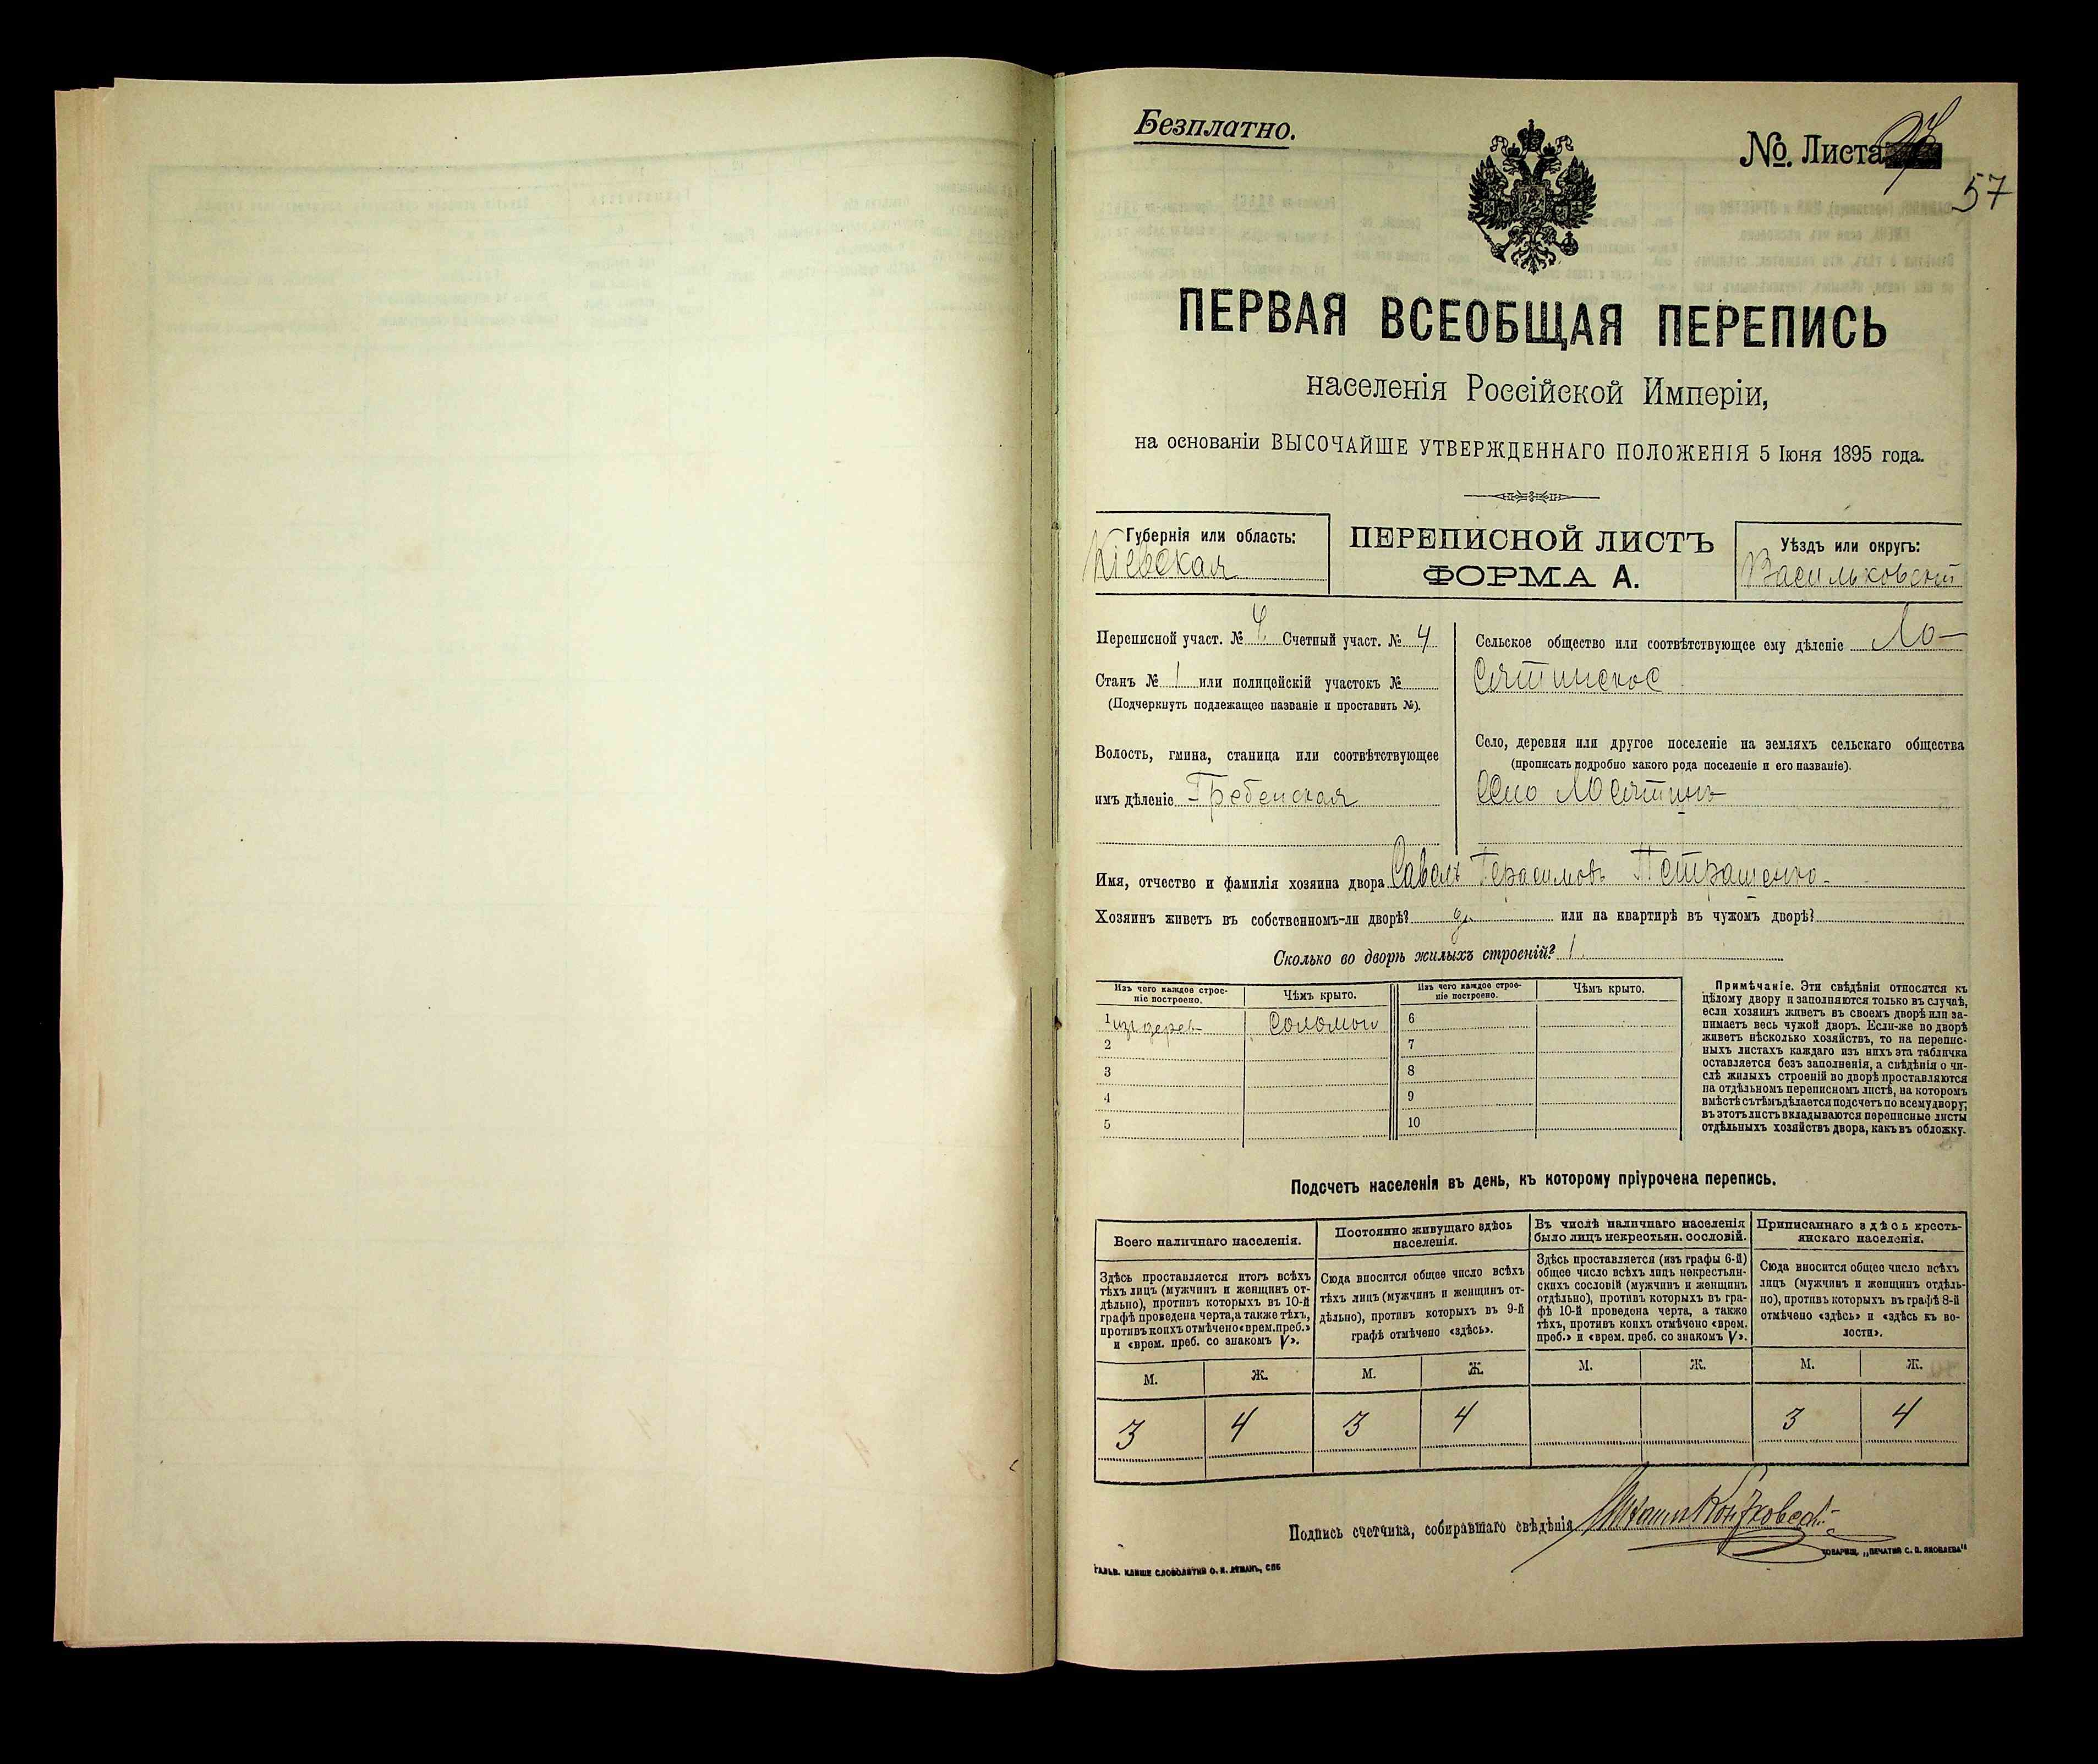 Безплатно.
№. Листа
57
ПЕРВАЯ ВСЕОБЩАЯ ПЕРЕПИСЬ
населенія Россійской Имперіи,
на основаніи ВЫСОЧАЙШЕ УТВЕРЖДЕННАГО ПОЛОЖЕНІЯ 5 Іюня 1895 года.
Губернія или область:
Кіевская
ПЕРЕПИСНОЙ ЛИСТЪ
ФОРМА А.
Уѣздъ или округъ:
Васильковскій
Переписной участ. № 4 Счетный участ. № 4
Станъ № 1 или полицейскій участокъ №
(Подчеркнуть подлежащее названіе и проставить №).
Волость, гмина, станица или соотвѣтствующее
имъ дѣленіе Гребенская
Сельское общество или соотвѣтствующее ему дѣленіе Ло-
сятинское
Село, деревня или другое поселеніе на земляхъ сельскаго общества
(прописать подробно какого рода поселеніе и его названіе).
Село Лосятинъ
Имя, отчество и фамилія хозяина двора Савелъ Герасимовъ Петрашенко
Хозяинъ живетъ въ собственномъ-ли дворѣ? да или на квартирѣ въ чужомъ дворѣ?
Сколько во дворѣ жилыхъ строеній? 1.
Изъ чего каждое строе-
ніе построено.
Чѣмъ крыто.
Изъ чего каждое строе-
ніе построено.
Чѣмъ крыто.
1 изъ дерев Соломой 6
2 7
3 8
4 9
5 10
Примѣчаніе. Эти свѣдѣнія относятся къ
цѣлому двору и заполняются только въ случаѣ,
если хозяинъ живетъ въ своемъ дворѣ или за-
нимаетъ весь чужой дворъ. Если-же во дворѣ
живетъ нѣсколько хозяйствъ, то на перепис-
ныхъ листахъ каждаго изъ нихъ эта табличка
оставляется безъ заполненія, а свѣдѣнія о чи-
слѣ жилыхъ строеній во дворѣ проставляются
на отдѣльномъ переписномъ листѣ, на которомъ
вмѣстѣ съ тѣмъ дѣлается подсчетъ по всему двору;
въ этотъ листъ вкладываются переписные листы
отдѣльныхъ хозяйствъ двора, какъ въ обложку.
Подсчетъ населенія въ день, къ которому пріурочена перепись.
Всего наличнаго населенія.
Здѣсь проставляется итогъ всѣхъ
тѣхъ лицъ (мужчинъ и женщинъ от-
дѣльно), противъ которыхъ въ 10-й
графѣ проведена черта, а также тѣхъ,
противъ коихъ отмѣчено «врем. преб.»
и «врем. преб. со знакомъ V».
Постоянно живущаго здѣсь
населенія.
Сюда вносится общее число всѣхъ
тѣхъ лицъ (мужчинъ и женщинъ от-
дѣльно), противъ которыхъ въ 9-й
графѣ отмѣчено «здѣсь».
Въ числѣ наличнаго населенія
было лицъ некрестьян. сословій.
Здѣсь проставляется (изъ графы 6-й)
общее число всѣхъ лицъ некрестьян-
скихъ сословій (мужчинъ и женщинъ
отдѣльно), противъ которыхъ въ гра-
фѣ 10-й проведена черта, а также
тѣхъ, противъ коихъ отмѣчено «врем.
преб.» и «врем. преб. со знакомъ V».
Приписаннаго здѣсь кресть-
янскаго населенія.
Сюда вносится общее число всѣхъ
лицъ (мужчинъ и женщинъ отдѣль-
но), противъ которыхъ въ графѣ 8-й
отмѣчено «здѣсь» и «здѣсь къ во-
лости».
М. Ж. М. Ж. М. Ж. М. Ж.
3 4 3 4 3 4
Подпись счетчика, собиравшаго свѣдѣнія
ГАЛЬВ. КЛИШЕ СЛОВОЛИТНИ О. И. ЛЕМАНЪ, СПБ
ТОВАРИЩ. „ПЕЧАТНЯ С. П. ЯКОВЛЕВА“